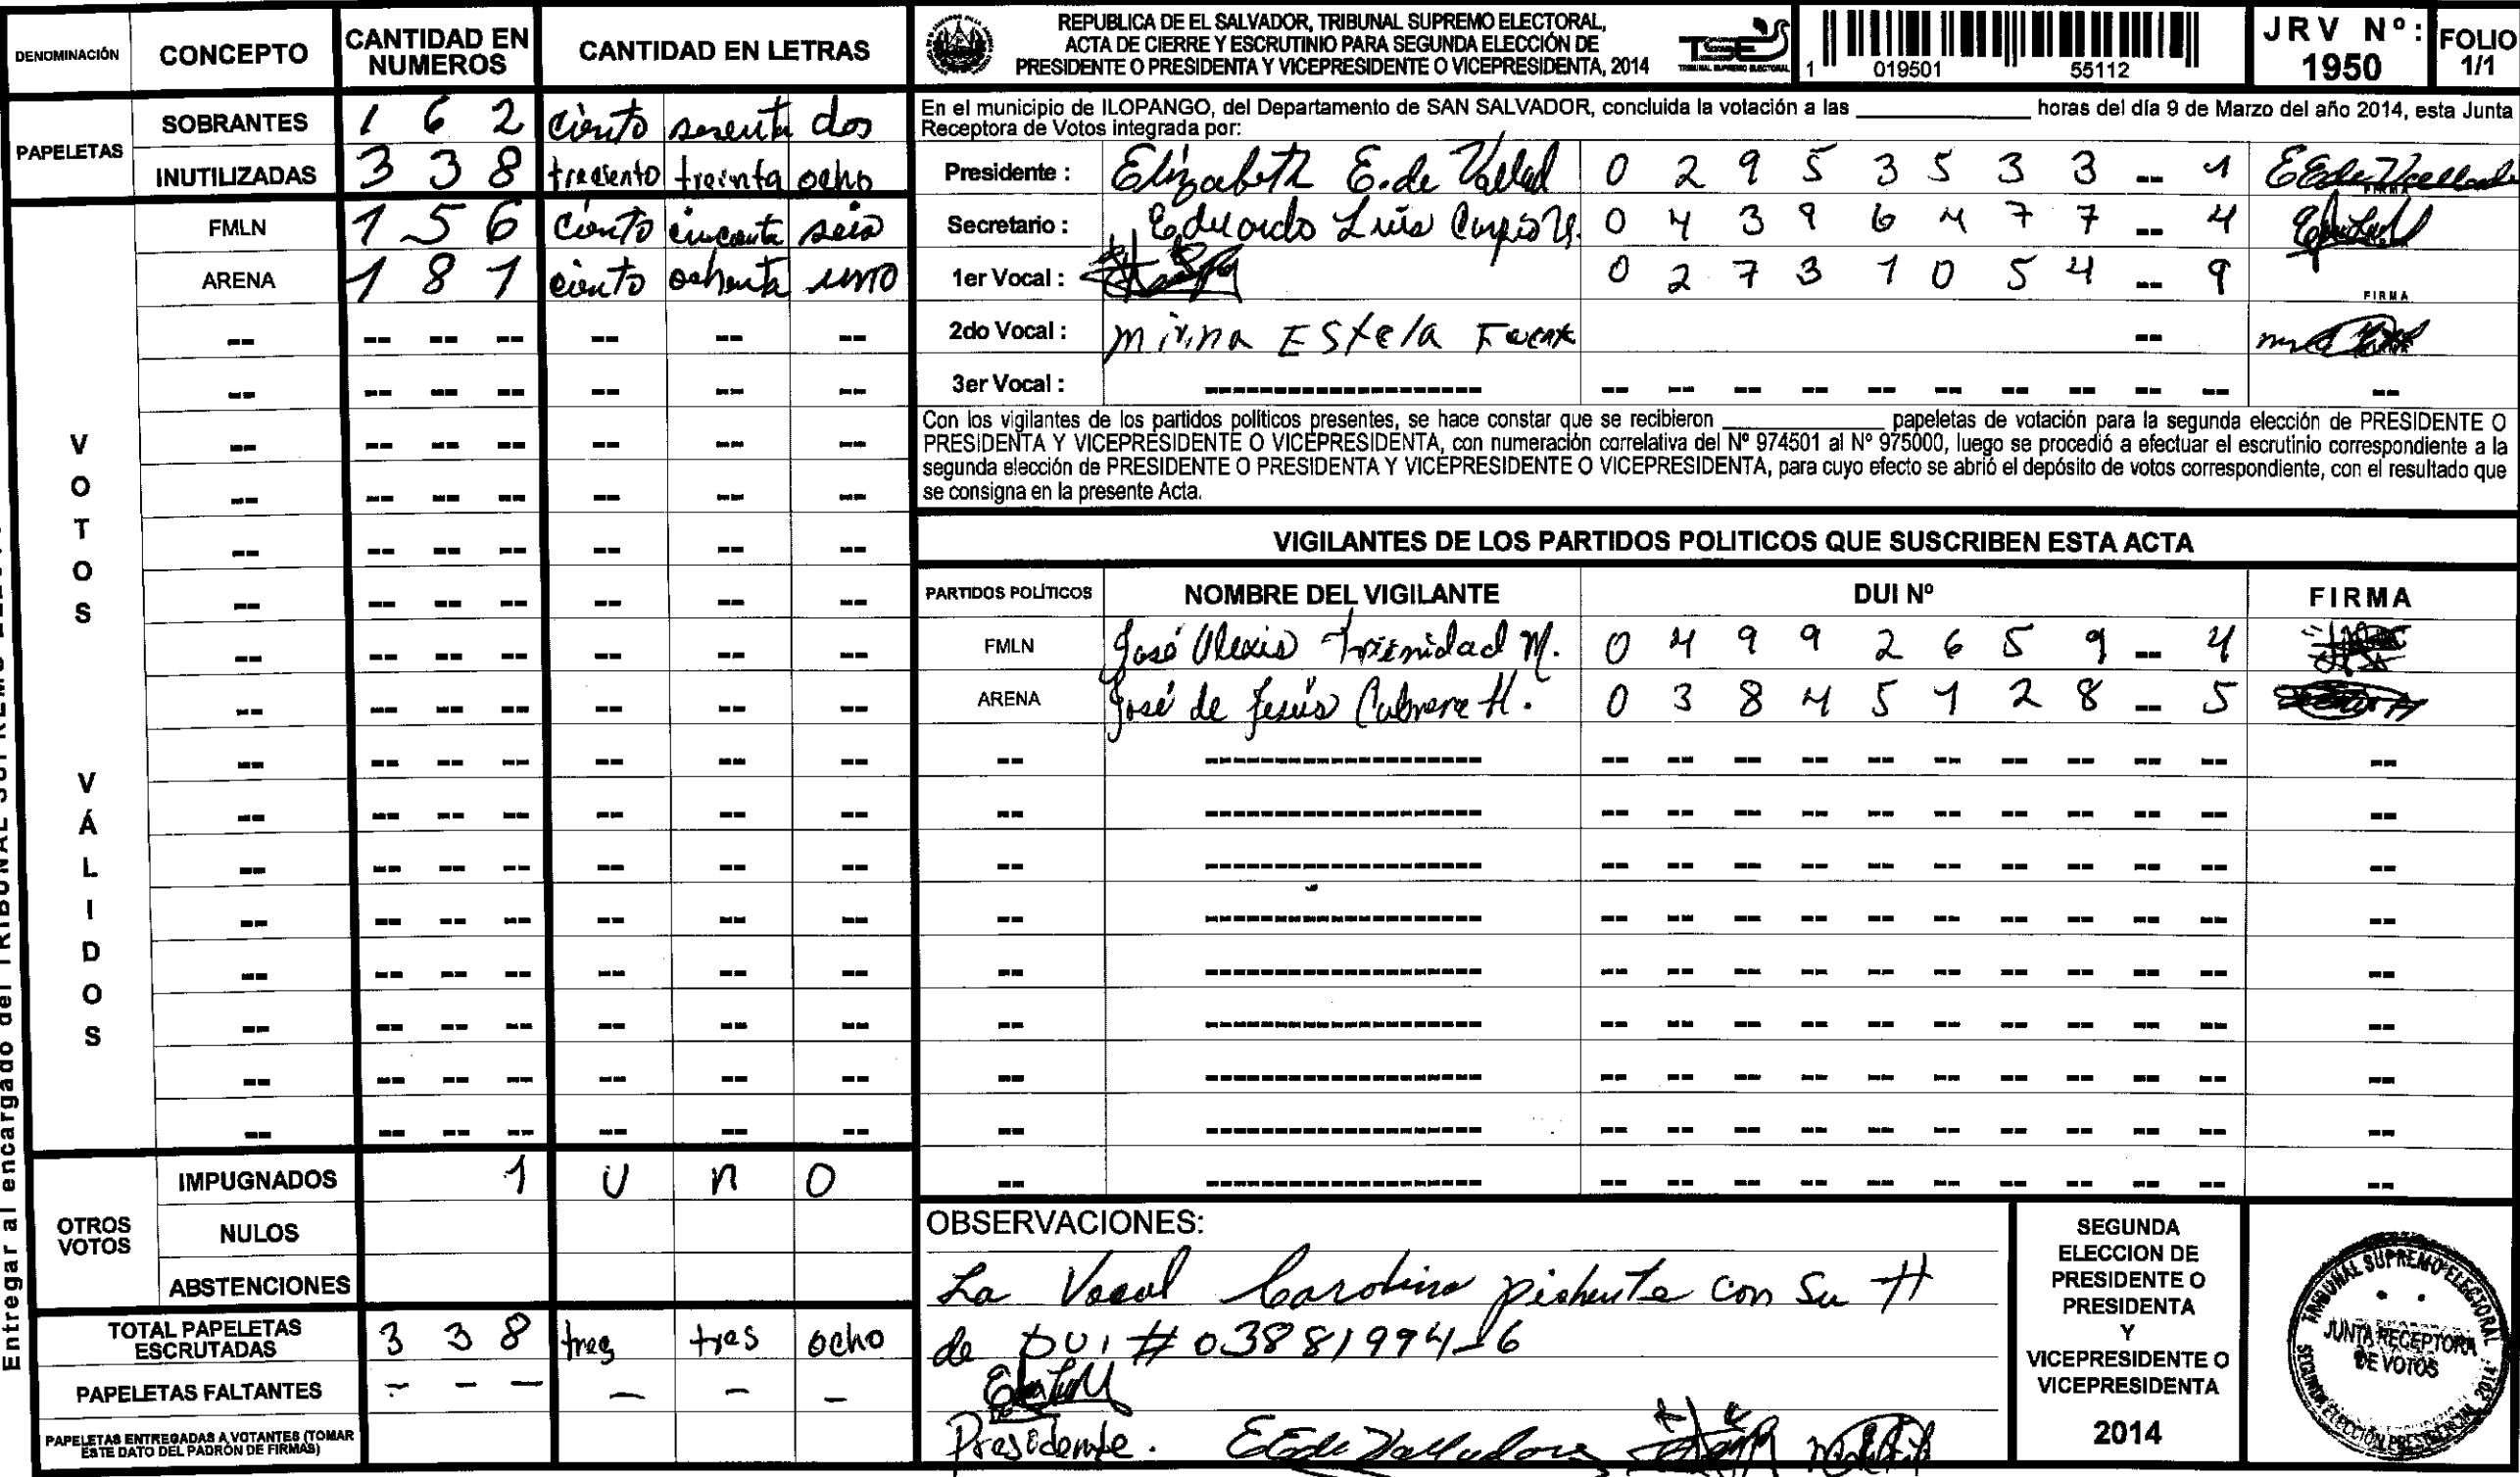 DENOMINACIÓN CONCEPTO CANTIDAD EN NUMEROS CANTIDAD EN LETRAS
PAPELETAS
SOBRANTES 1 6 2 ciento sesenta dos
INUTILIZADAS 3 3 8 treciento treinta ocho
VOTOS VÁLIDOS
FMLN 1 5 6 ciento cincuenta seis
ARENA 1 8 1 ciento ochenta uno
OTROS VOTOS
IMPUGNADOS 1 U n O
NULOS
ABSTENCIONES
TOTAL PAPELETAS ESCRUTADAS 3 3 8 tres tres ocho
PAPELETAS FALTANTES - - - - - -
PAPELETAS ENTREGADAS A VOTANTES (TOMAR
ESTE DATO DEL PADRÓN DE FIRMAS)
Entregar al encargado del TRIBUNAL
REPUBLICA DE EL SALVADOR, TRIBUNAL SUPREMO ELECTORAL,
ACTA DE CIERRE Y ESCRUTINIO PARA SEGUNDA ELECCIÓN DE
PRESIDENTE O PRESIDENTA Y VICEPRESIDENTE O VICEPRESIDENTA, 2014
TSE
TRIBUNAL SUPREMO ELECTORAL
1 019501 55112
JRV Nº: 1950
FOLIO 1/1
En el municipio de ILOPANGO, del Departamento de SAN SALVADOR, concluida la votación a las ____ horas del día 9 de Marzo del año 2014, esta Junta
Receptora de Votos integrada por:
Presidente : Elizabeth E. de 0 2 9 5 3 5 3 3 -- 1
FIRMA
Secretario : Eduardo Luis 0 4 3 9 6 4 7 7 -- 4
1er Vocal : 0 2 7 3 1 0 5 4 -- 9
FIRMA
2do Vocal : Mirna EStela --
3er Vocal :
Con los vigilantes de los partidos políticos presentes, se hace constar que se recibieron ____ papeletas de votación para la segunda elección de PRESIDENTE O
PRESIDENTA Y VICEPRESIDENTE O VICEPRESIDENTA, con numeración correlativa del Nº 974501 al Nº 975000, luego se procedió a efectuar el escrutinio correspondiente a la
segunda elección de PRESIDENTE O PRESIDENTA Y VICEPRESIDENTE O VICEPRESIDENTA, para cuyo efecto se abrió el depósito de votos correspondiente, con el resultado que
se consigna en la presente Acta.
VIGILANTES DE LOS PARTIDOS POLITICOS QUE SUSCRIBEN ESTA ACTA
PARTIDOS POLÍTICOS NOMBRE DEL VIGILANTE DUI Nº FIRMA
FMLN José Alexis Trinidad M. 0 4 9 9 2 6 5 9 -- 4
ARENA José de Jesús H. 0 3 8 4 5 1 2 8 -- 5
OBSERVACIONES:
La Vocal Carolina con Su #
de DUI # 03881994-6
Presidente.
SEGUNDA
ELECCION DE
PRESIDENTE O
PRESIDENTA
Y
VICEPRESIDENTE O
VICEPRESIDENTA
2014
TRIBUNAL SUPREMO ELECTORAL
JUNTA RECEPTORA
DE VOTOS
SEGUNDA ELECCIÓN PRESIDENCIAL 2014